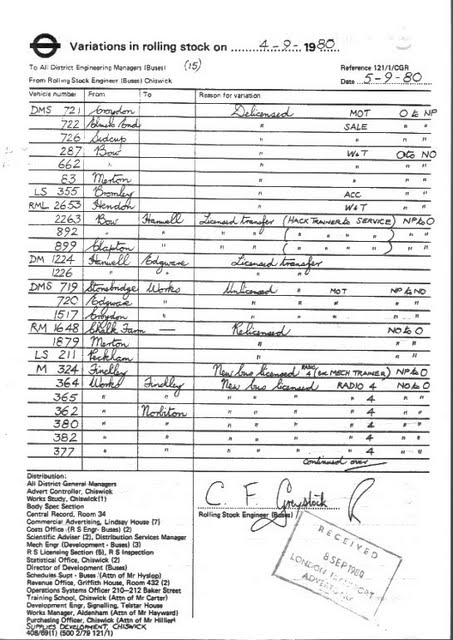 Variations in rolling stock on 4-9-1980
To All District Engineering Managers (Buses) (15)
Reference 121/1/CGR
From Rolling Stock Engineer (Buses) Chiswick
Date 5-9-80
Vehicle number From To Reason for variation
DMS 721 Croydon Delicensed MOT O to NP
722 " SALE " "
726 Sidcup " " " "
287 Bow " W&T O to NO
662 " " " " "
83 Merton " " " "
LS 355 Bromley " ACC " "
RML 2653 Hendon " W&T " "
2263 Bow Hanwell Licensed transfer (HACK TRAINER to SERVICE) NP to O
892 " " " " ( " " " " ) " "
899 Clapton " " " ( " " " " ) " "
DM 1224 Hanwell Edgware Licensed transfer
1226 " " "
DMS 719 Stonebridge Works Unlicensed MOT NP to NO
720 Edgware " " " " "
1517 Croydon " " " " "
RM 1648 Chalk Farm — Relicensed NO to O
1879 Merton " " "
LS 211 Peckham " " "
M 324 Finchley New bus licensed RADIO 4 (ex MECH TRAINER) NP to O
364 Works Finchley New bus licensed RADIO 4 NO to O
365 " " " " " " 4 " "
362 " Norbiton " " " " 4 " "
380 " " " " " " 4 " "
382 " " " " " " 4 " "
377 " " " " " " 4 " "
continued over
Distribution:
All District General Managers
Advert Controller, Chiswick
Works Study, Chiswick (1)
Body Spec Section
Central Record, Room 34
Commercial Advertising, Lindsay House (7)
Costs Office (R S Engr- Buses) (2)
Scientific Adviser (2), Distribution Services Manager
Mech Engr (Development - Buses) (3)
R S Licensing Section (5), R S Inspection
Statistical Office, Chiswick (2)
Director of Development (Buses)
Schedules Supt - Buses (Attn of Mr Hyslop)
Revenue Office, Griffith House, Room 432 (2)
Operations Systems Officer 210–212 Baker Street
Training School, Chiswick (Attn of Mr Carter)
Development Engr, Signalling, Telstar House
Works Manager, Aldenham (Attn of Mr Hayward)
Purchasing Officer, Chiswick (Attn of Mr Hillier)
SUPPLIES DEVELOPMENT, CHISWICK
408/69(1) (500 2/79 121/1)
C. F.
Rolling Stock Engineer (Buses)
RECEIVED
8 SEP 1980
LONDON TRANSPORT